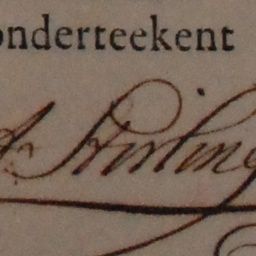 onderteekent
A Stirling